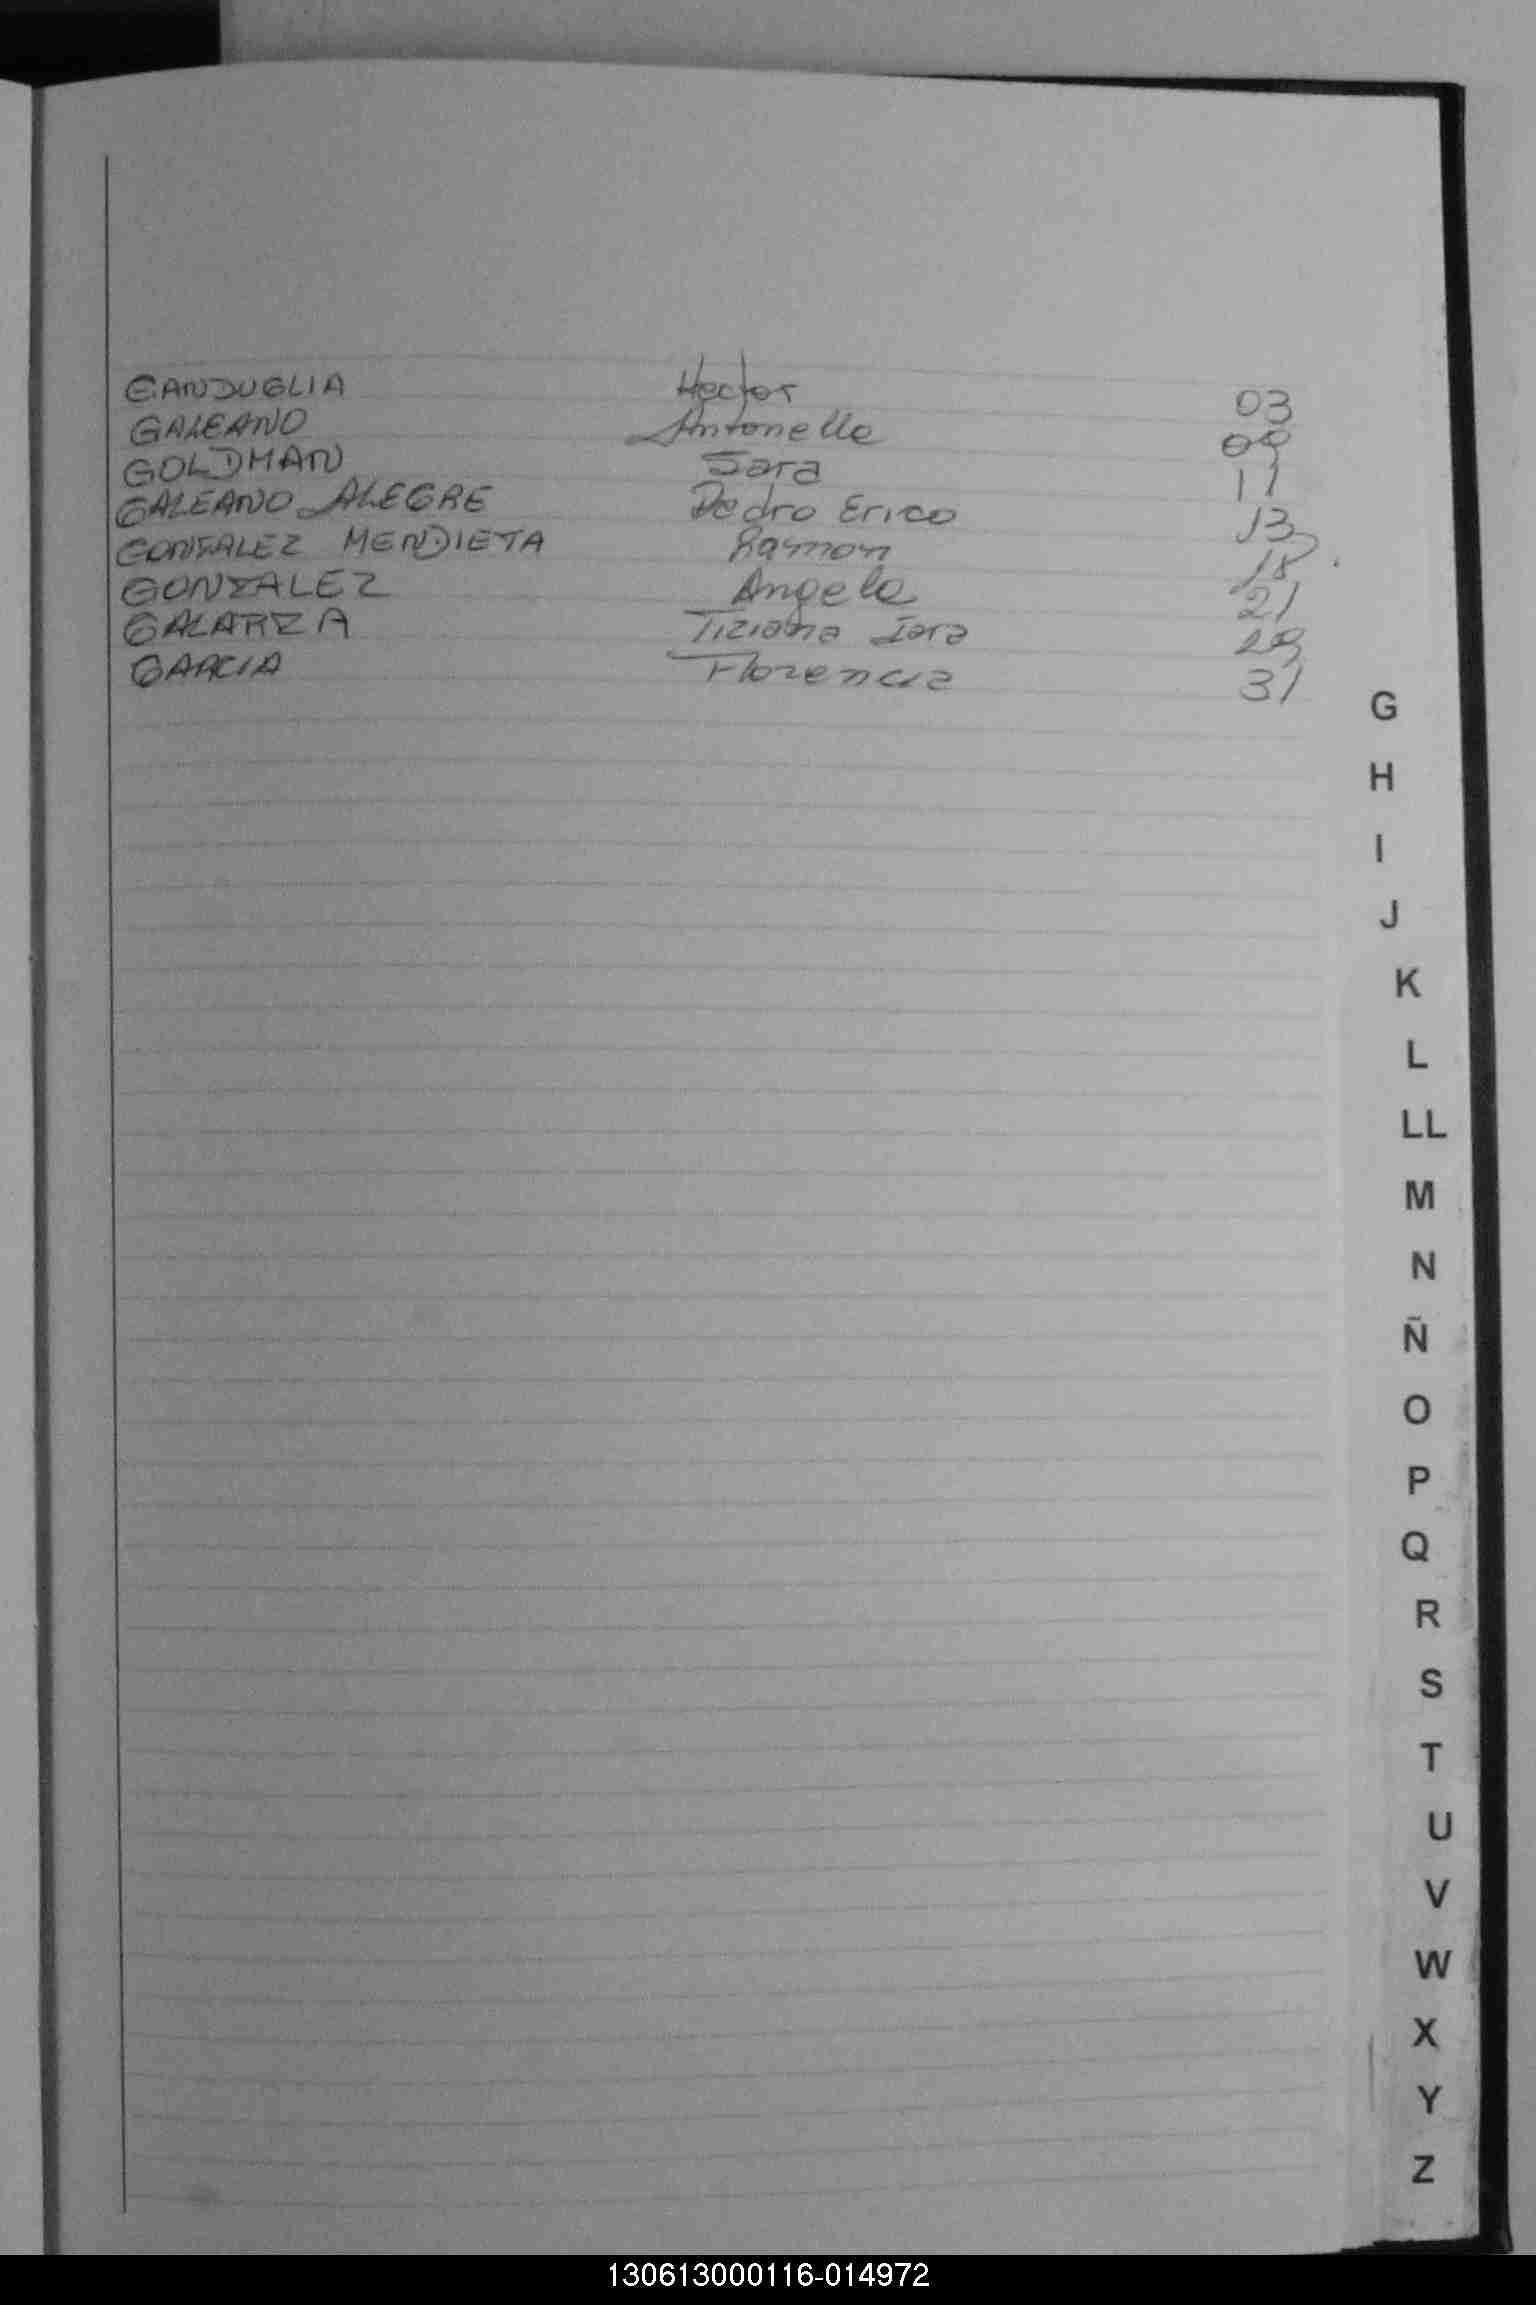 GANDUGLIA Hector 03
GALEANO Antonella 08
GOLDMAN Sara 11
GALEANO ALEGRE Pedro Erico 13
GONZALEZ MENDIETA Ramon 18
GONZALEZ Angela 21
GALARZA Tiziana Iara
GARCIA Florencia 31
G
H
I
J
K
L
LL
M
N
Ñ
O
P
Q
R
S
T
U
V
W
X
Y
Z
130613000116-014972